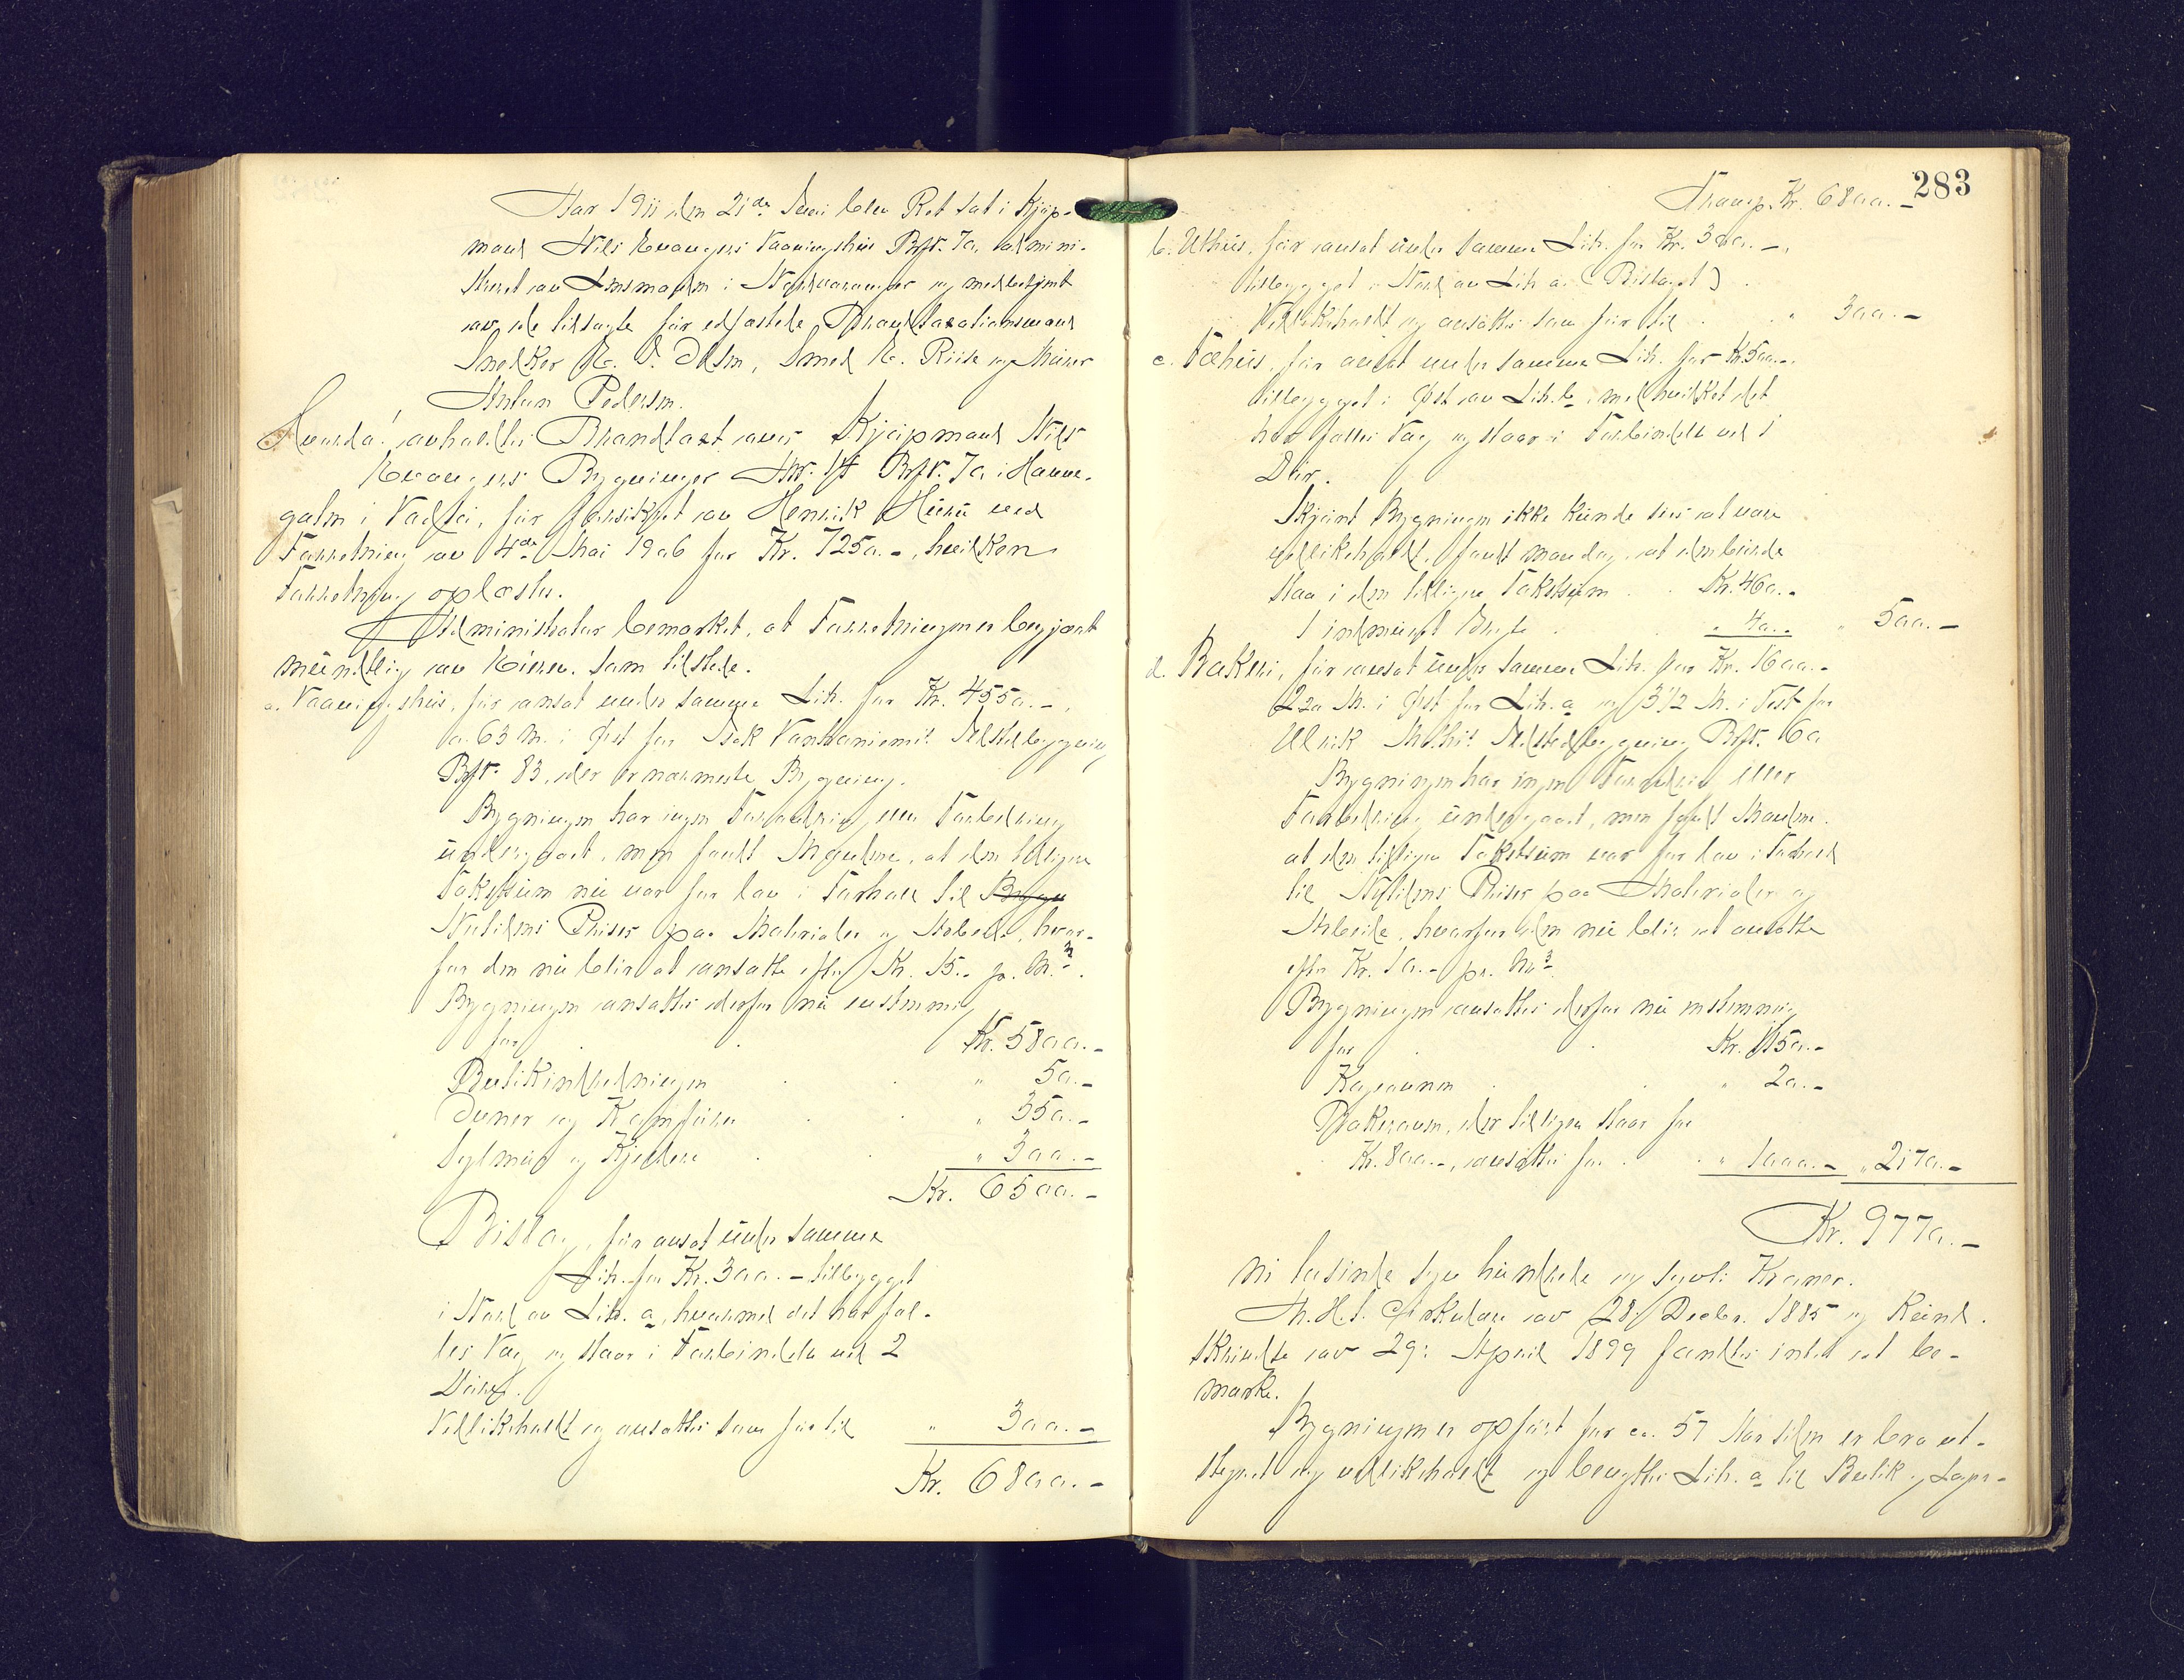 Aar 1911 den 21de Juni blev Ret sat i Kjøp-
mand Nils Evangers Vaaningshus Brf.Nr. 70, administ-
reret av Lensmanden i Nordvaranger og medbetjent
av de tilsagte før edfæstede Brandtaxationsmænd
Snedker E. O. Olsen, Smed E. Riise og Murer
Anton Pedersen.
Hvorda: avholdtes Brandtaxt over Kjøpmand Nils
Evangers Bygninger Brf.Nr. 70 i Havne-
gaten i Vadsø, før forsikret av Henrik Hueru ved
Forretning av 4de Mai 1906 for Kr. 7250.-, hvilken
Forretning oplæstes.
Administrator bemærket, at Forretningen er begjært
mundtlig av Eieren som tilstede.
a. Vaaningshus, før ansat under samme Litr. for Kr. 4550.-,
a. 63 M. i Øst for Isak Vanhaniemis Ildstedbygning
Brf.Nr. 83, der er nærmeste Bygning.
Bygningen har ingen Forandring eller Forbedring
undergaaet, men fandt Mændene, at den tidligere
Takstsum nu var for lav i Forhold til Bygn
Nutidens Priser paa Materialer og Arbeide, hvor-
for den nu blir at ansætte efter Kr. 15.- pr. M.3.
Bygningen ansættes derfor nu enstemmig
for . . Kr. 5800.-
Butikindredningen . . " 50.-
Ovner og Komfurer . . " 350.-
Sylmur og Kjeldere . . " 300.-
Kr. 6500.-
Bislag, før ansat under samme
Litr. for Kr. 300.- tilbygget
i Nord av Litr. a, hvormed det har fæl-
les Væg og staar i Forbindelse ved 2
Dører.
Vedlikeholdt og ansættes som før til " 300.-
Kr. 6800.-
283
Transp. Kr. 6800.-
b. Uthus, før ansat under samme Litr. for Kr. 300.-,
tilbygget i Nord av Litr. a. (Bislaget)
Vedlikeholdt og ansættes som før til . . " 300.-
c. Fæhus, før ansat under samme Litr. for Kr. 500.-
tilbygget i Øst av Litr. b, med hvilket det
har fælles Væg og staar i Forbindelse ved 1
Dør.
Skjønt Bygningen ikke kunde sies at være
vedlikeholdt, fandt man dog, at den burde
staa i den tidligere Takstsum . . Kr. 460.-
1 indmuret Gryte . . " 40.- " 500.-
d. Bakeri, før ansat under samme Litr. for Kr. 1600.-
220 M. i Øst for Litr. a og 31/2 M. i Vest for
Ulrik Ildstedbygning Brf.Nr. 60
Bygningen har ingen Forandring eller
Forbedring undergaaet, men fandt Mændene.
at den tidligere Takstsum var for lav i Forhold
til Nutidens Priser paa Materialer og
Arbeide, hvorfor den nu blir at ansætte
efter Kr. 10.- pr. M3.
Bygningen ansættes derfor nu enstemmig
for . . Kr. 1150.-
Kogeovnen . . " 20.-
Bakerovn, der tidligere staar for
Kr. 800.-, ansættes for . . " 1000.- " 2170.-
Kr. 9770.-
ni tusinde syv hundrede og sytti Kroner.
M. H. t. Cirkulære av 28: Decbr. 1885 og Rund-
skrivelse av 29: April 1899 fandtes intet at be-
mærke.
Bygningen er opført for ca. 57 Aar siden er bra ut-
styret og vedlikeholdt og benyttes Litr. a til Butik og Lager-